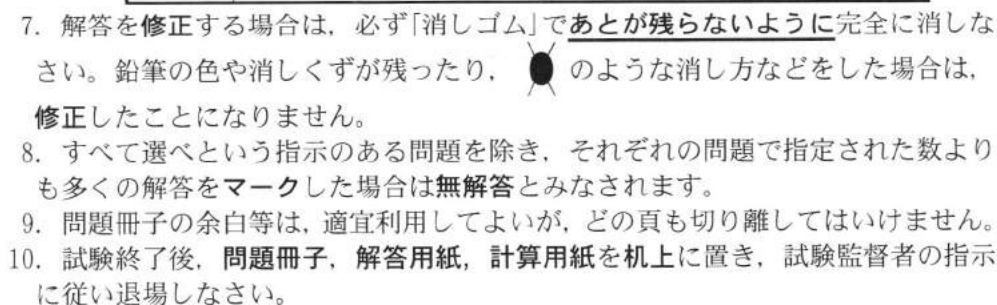 7. 解答を修正する場合は，必ず「消しゴム」であとが残らないように完全に消しな
さい。鉛筆の色や消しくずが残ったり， のような消し方などをした場合は，
修正したことになりません。
8. すべて選べという指示のある問題を除き，それぞれの問題で指定された数より
も多くの解答をマークした場合は無解答とみなされます。
9. 問題冊子の余白等は，適宜利用してよいが，どの頁も切り離してはいけません。
10. 試験終了後，問題冊子，解答用紙，計算用紙を机上に置き，試験監督者の指示
に従い退場しなさい。